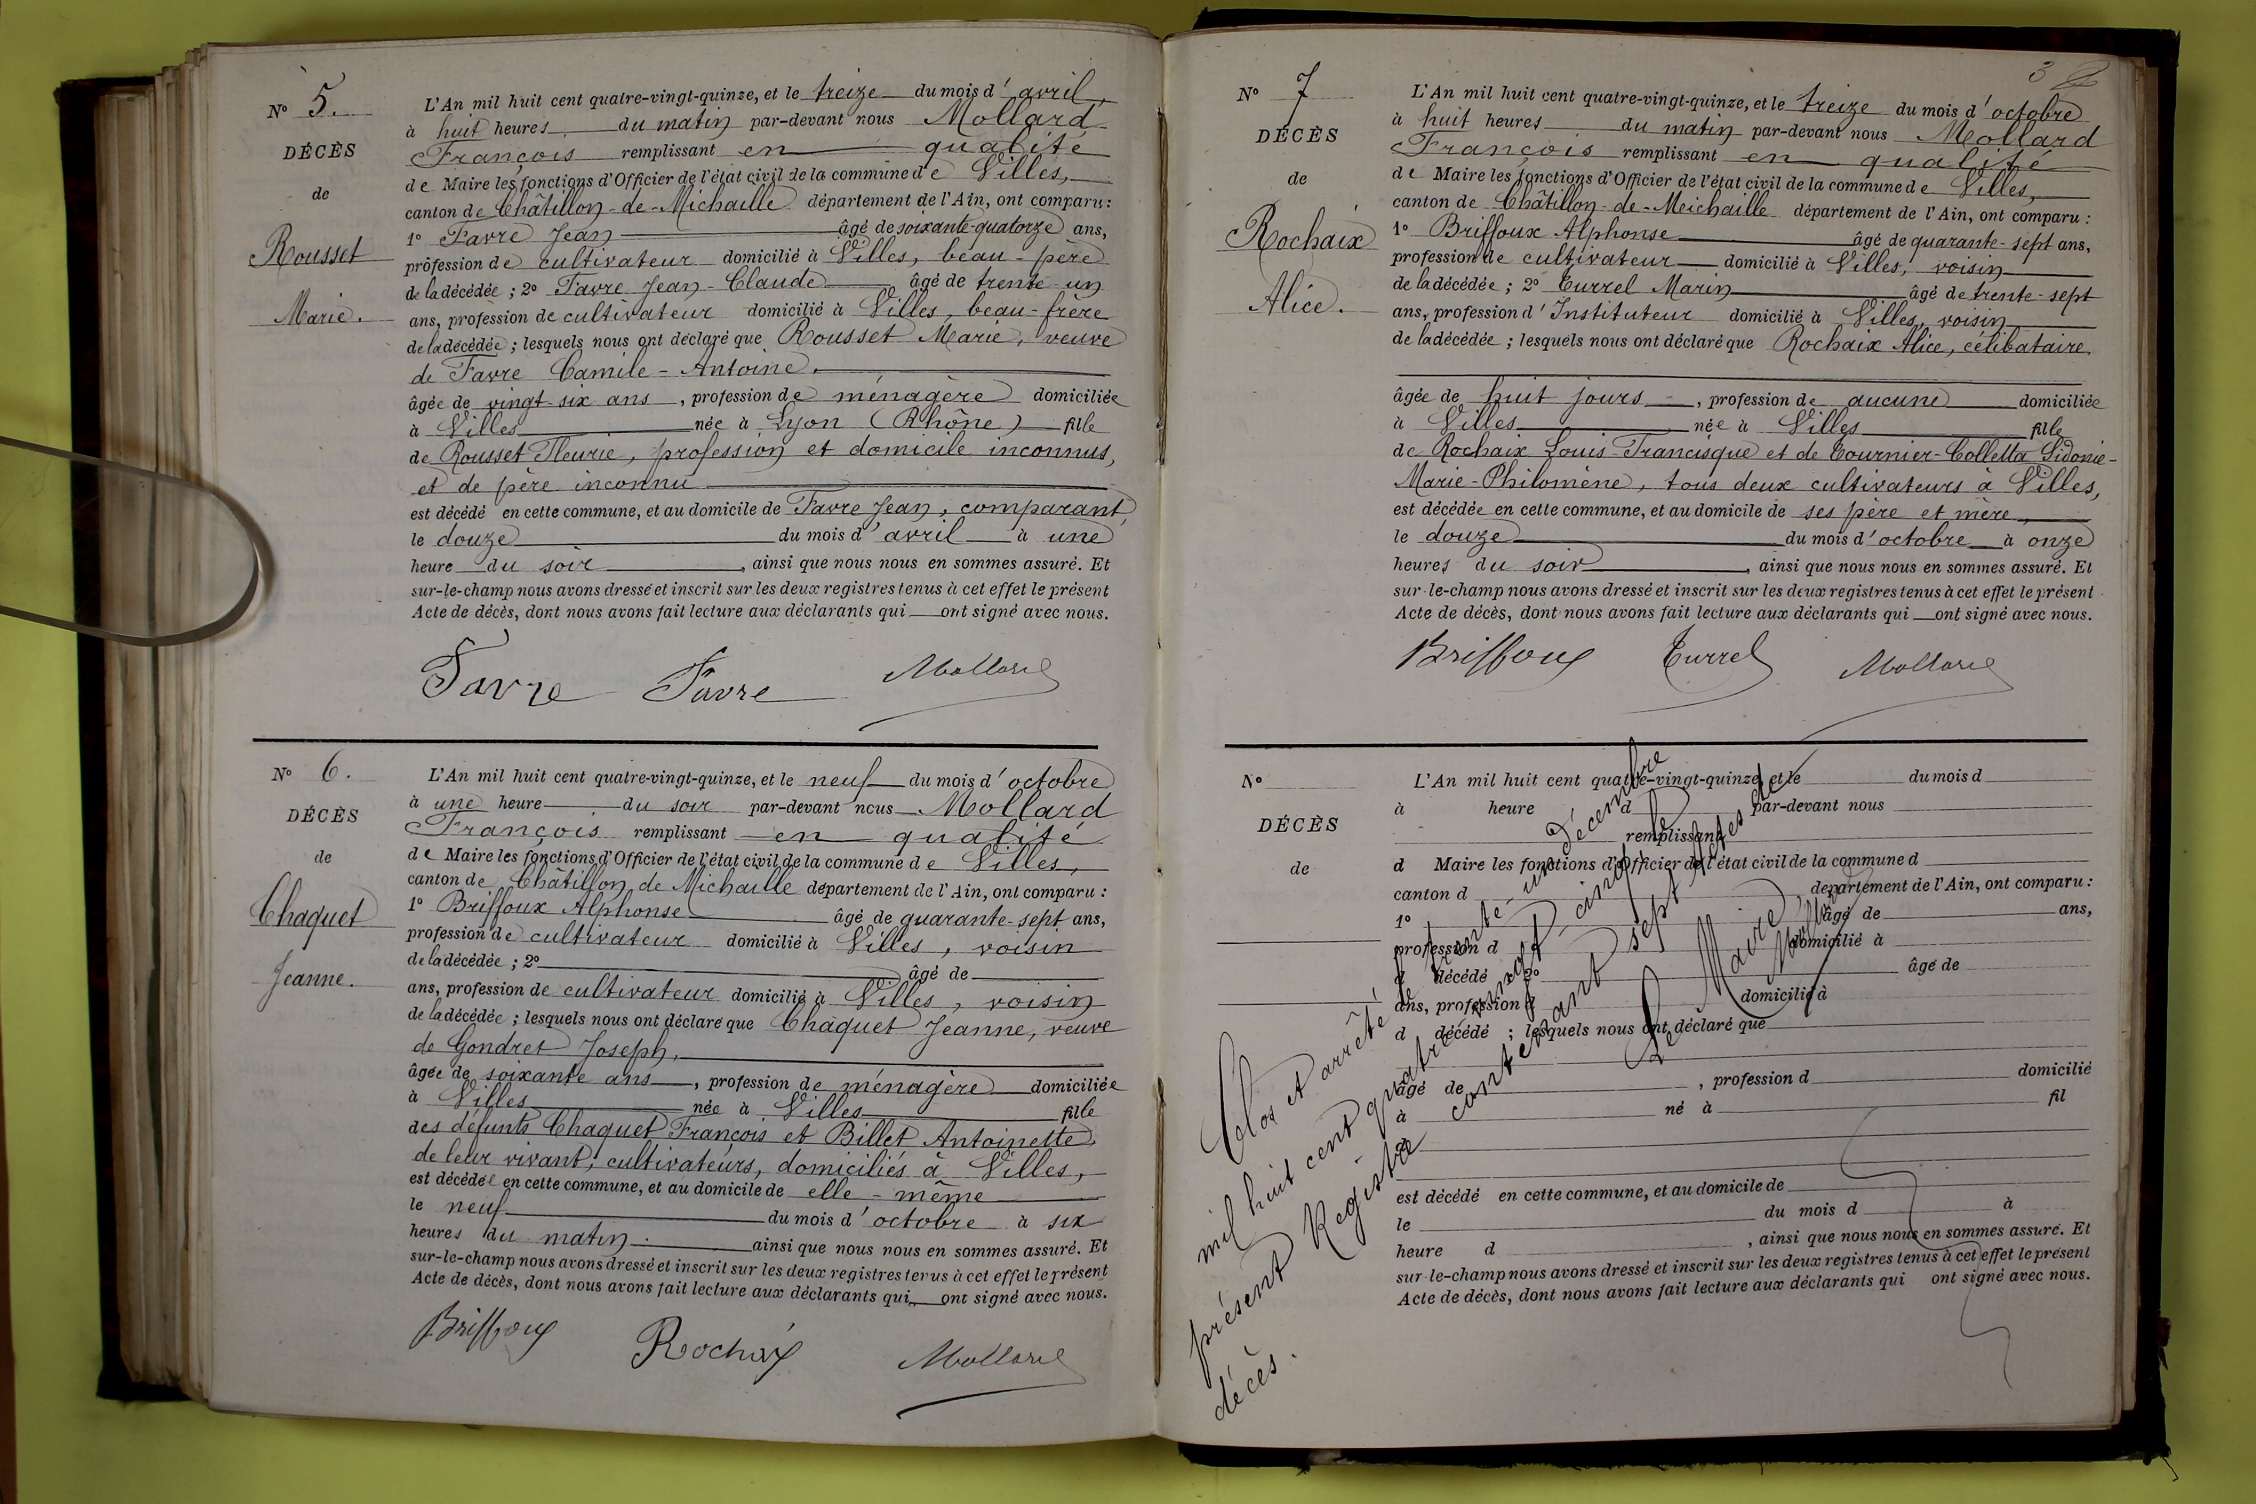 N° 5.
DÉCÈS
de
Rousset
Marie.
L'An mil huit cent quatre-vingt-quinze, et le treize du mois d'avril,
à huit heures du matin par-devant nous Mollard
François remplissant en qualité
de Maire les fonctions d'Officier de l'état civil de la commune de Villes,
canton de Châtillon-de-Michaille département de l'Ain, ont comparu :
1° Favre Jean âgé de soixante-quatorze ans,
profession de cultivateur domicilié à Villes, beau-père
de la décédée ; 2° Favre Jean-Claude âgé de trente-un
ans, profession de cultivateur domicilié à Villes, beau-frère
de la décédée ; lesquels nous ont déclaré que Rousset Marie, veuve
de Favre Camile-Antoine.
âgée de vingt-six ans, profession de ménagère domiciliée
à Villes née à Lyon (Rhône) fille
de Rousset Fleurie, profession et domicile inconnus,
et de père inconnu
est décédé en cette commune, et au domicile de Favre Jean, comparant,
le douze du mois d'avril à une
heure du soir, ainsi que nous nous en sommes assuré. Et
sur-le-champ nous avons dressé et inscrit sur les deux registres tenus à cet effet le présent
Acte de décès, dont nous avons fait lecture aux déclarants qui ont signé avec nous.
Favre Favre Mollard
N° 6.
DÉCÈS
de
Chaquet
Jeanne.
L'An mil huit cent quatre-vingt-quinze, et le neuf du mois d'octobre
à une heure du soir par-devant nous Mollard
François remplissant en qualité
de Maire les fonctions d'Officier de l'état civil de la commune de Villes,
canton de Châtillon de Michaille département de l'Ain, ont comparu :
1° Briffoux Alphonse âgé de quarante-sept ans,
profession de cultivateur domicilié à Villes, voisin
de la décédée ; 2° âgé de
ans, profession de cultivateur domicilié à Villes, voisin
de la décédée ; lesquels nous ont déclaré que Chaquet Jeanne, veuve
de Gondret Joseph,
âgée de soixante ans, profession de ménagère domiciliée
à Villes née à Villes fille
des défunts Chaquet François et Billet Antoinette,
de leur vivant, cultivateurs, domiciliés à Villes,
est décédée en cette commune, et au domicile de elle-même
le neuf du mois d'octobre à six
heures du matin. ainsi que nous nous en sommes assuré. Et
sur-le-champ nous avons dressé et inscrit sur les deux registres tenus à cet effet le présent
Acte de décès, dont nous avons fait lecture aux déclarants qui ont signé avec nous.
Briffoux Rochaix Mollard
3
N° 7
DÉCÈS
de
Rochaix
Alice.
L'An mil huit cent quatre-vingt-quinze, et le treize du mois d'octobre
à huit heures du matin par-devant nous Mollard
François remplissant en qualité
de Maire les fonctions d'Officier de l'état civil de la commune de Villes,
canton de Châtillon-de-Meichaille département de l'Ain, ont comparu :
1° Briffoux Alphonse âgé de quarante-sept ans,
profession de cultivateur domicilié à Villes, voisin
de la décédée ; 2° Turrel Marin âgé de trente-sept
ans, profession d'Instituteur domicilié à Villes, voisin
de la décédée ; lesquels nous ont déclaré que Rochaix Alice, célibataire,
âgée de huit jours, profession de aucune domiciliée
à Villes née à Villes fille
de Rochaix Louis-Francisque et de Tournier-Colletta Sidonie-
Marie-Philomène, tous deux cultivateurs à Villes,
est décédée en cette commune, et au domicile de ses père et mère,
le douze du mois d'octobre à onze
heures du soir, ainsi que nous nous en sommes assuré. Et
sur-le-champ nous avons dressé et inscrit sur les deux registres tenus à cet effet le présent
Acte de décès, dont nous avons fait lecture aux déclarants qui ont signé avec nous.
Briffoux Turrel Mollard
N°
DÉCÈS
de
L'An mil huit cent quatre-vingt-quinze, et le du mois d
à heure d par-devant nous
remplissant
d Maire les fonctions d'Officier de l'état civil de la commune d
canton d département de l'Ain, ont comparu :
1° âgé de ans,
profession d domicilié à
d décédé 2° âgé de
ans, profession d domicilié à
d décédé ; lesquels nous ont déclaré que
âgé de , profession d domicilié
à né à fil
d
est décédé en cette commune, et au domicile de
le du mois d à
heure d , ainsi que nous nous en sommes assuré. Et
sur-le-champ nous avons dressé et inscrit sur les deux registres tenus à cet effet le présent
Acte de décès, dont nous avons fait lecture aux déclarants qui ont signé avec nous.
Clos et arrêté le trente-un décembre
mil huit cent quatre-vingt-cinq, le
présent Registre contenant sept actes de
décès.
Le Maire,
Mollard